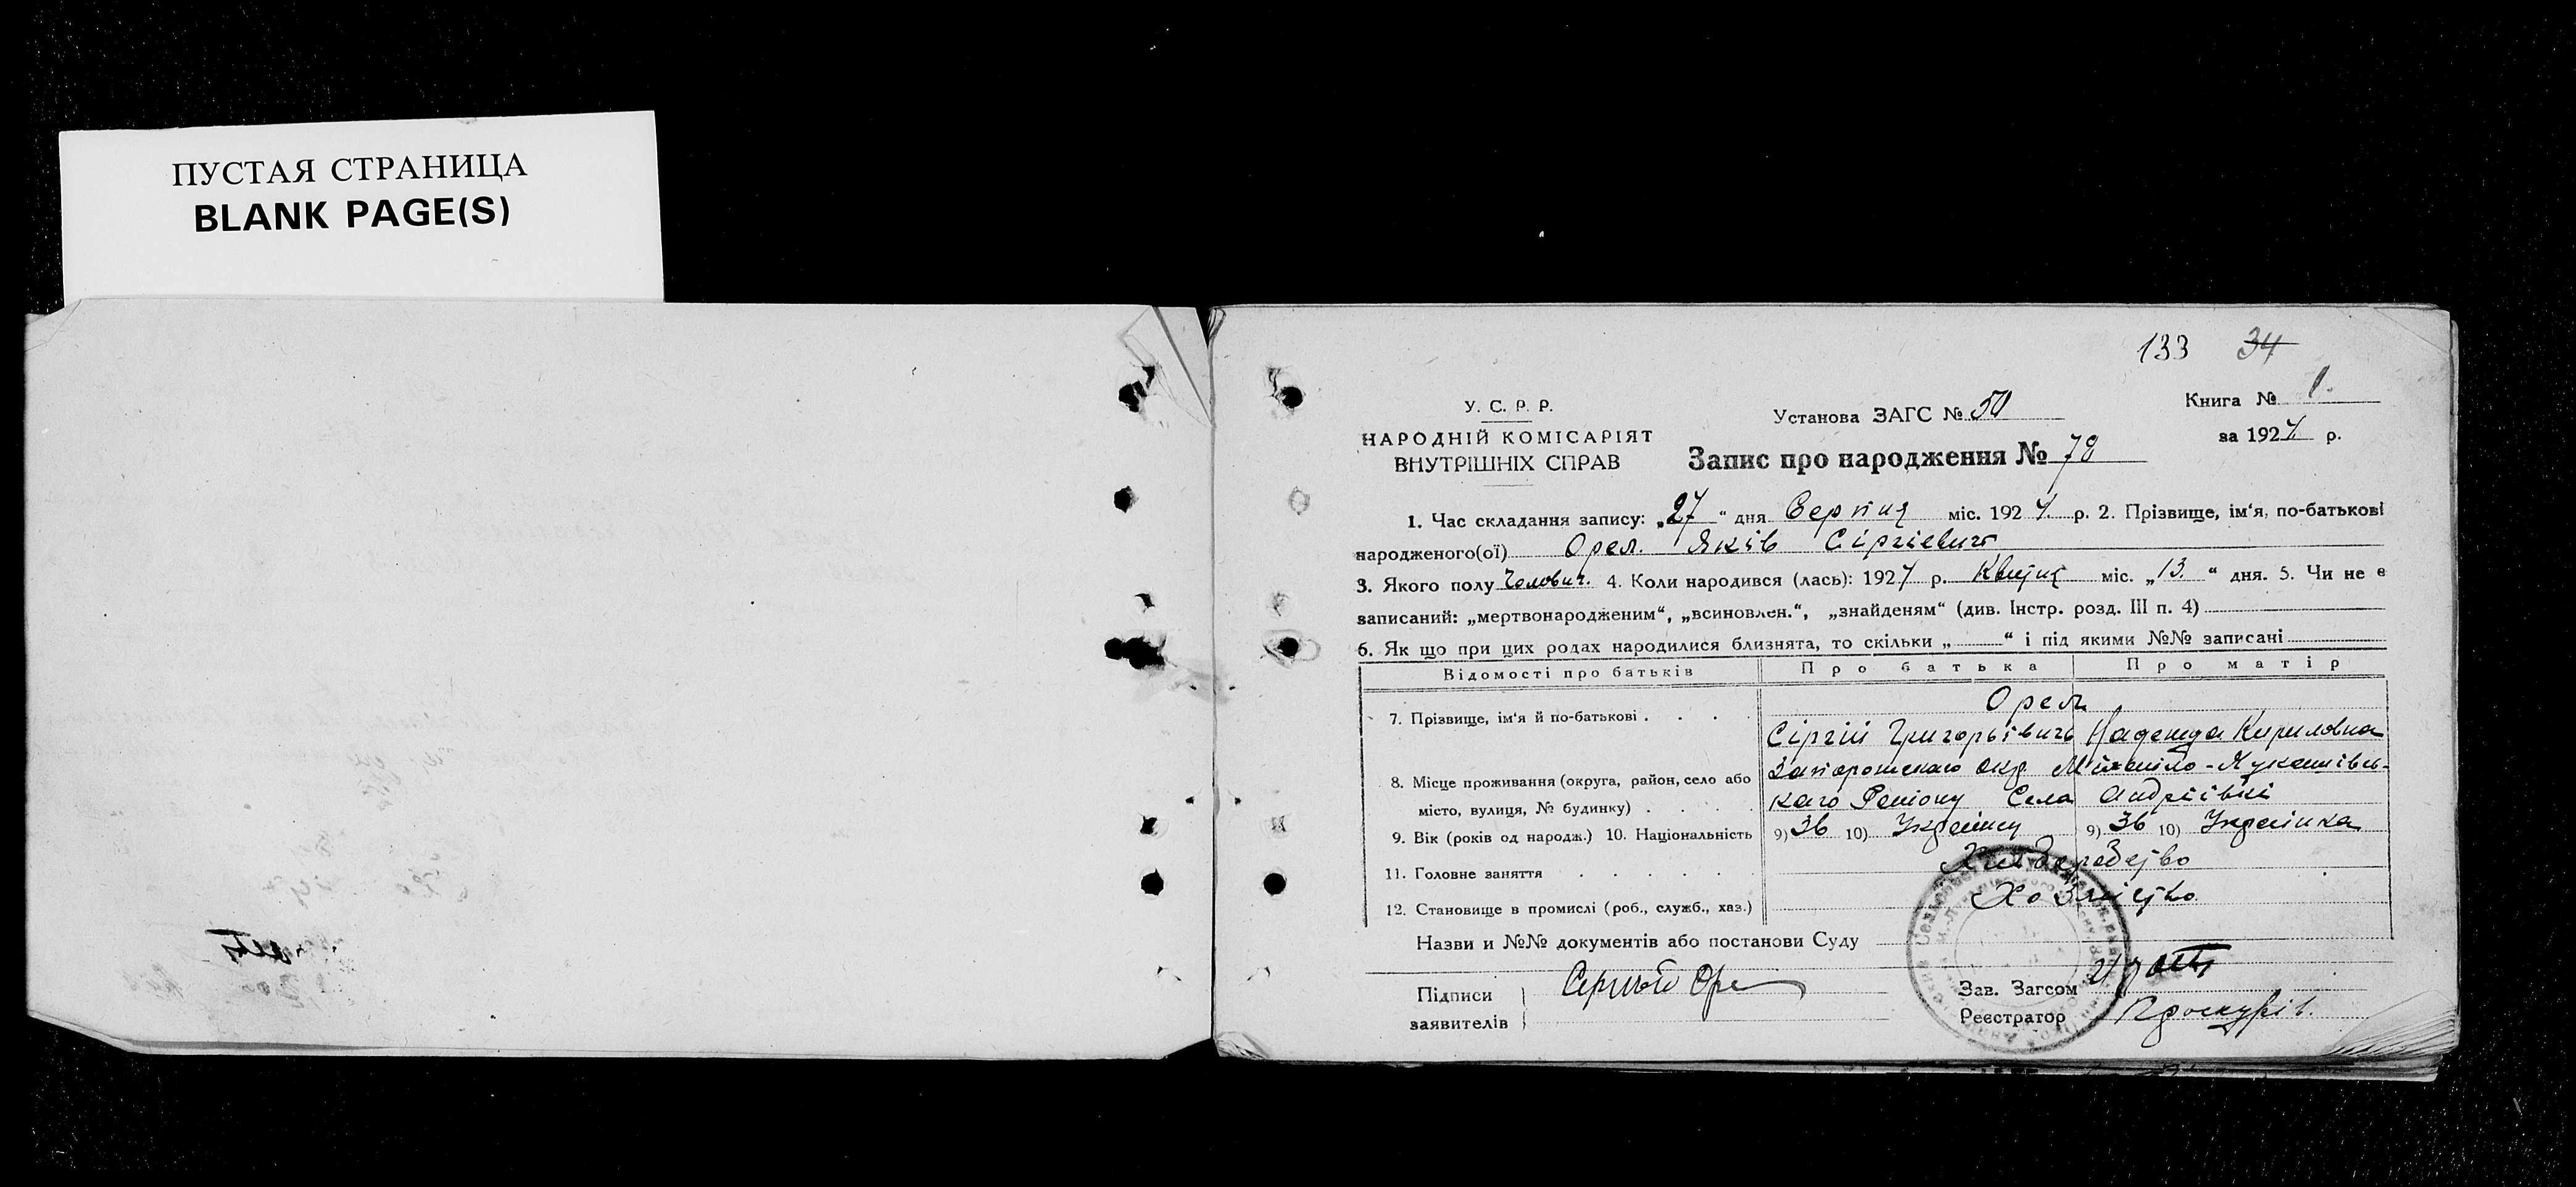 ПУСТАЯ СТРАНИЦА
BLANK PAGE(S)
133 34
У. С. Р. Р.
НАРОДНІЙ КОМІСАРІЯТ
ВНУТРІШНІХ СПРАВ
Установа ЗАГС № 50
Книга № 1.
за 1924 р.
Запис про народження № 78
1. Час складання запису: „27“ дня Серпня міс. 1924. р. 2. Прізвище, ім'я, по-батькові
народженого(ої) Орел. Яків Сіргієвич
3. Якого полу Чолович. 4. Коли народився (лась): 1924 р. Квітня міс. „13.“ дня. 5. Чи не є
записаний: „мертвонародженим“, „всиновлен.“, „знайденям“ (див. Інстр. розд. III п. 4)
6. Як що при цих родах народилися близнята, то скільки „ “ і під якими №№ записані
Відомості про батьків Про батька Про матір
7. Прізвище, ім'я й по-батькові . . . . Орел
Сіргій Григорьївичь Надежда Кириловна
8. Місце проживання (округа, район, село або Запорожского окр Міхайло-Лукашівсь-
місто, вулиця, № будинку) . . . . каго Району Села Андріївкі
9. Вік (років од народж.) 10. Національність 9) 36 10) Українец 9) 36 10) Українка
11. Головне заняття . . . . . . Хліборобство
12. Становище в промислі (роб., служб., хаз.) Хозяйство
Назви и №№ документів або постанови Суду
Підписи Сергий Оре
заявителів
Зав. Загсом
Реєстратор Проскурів.